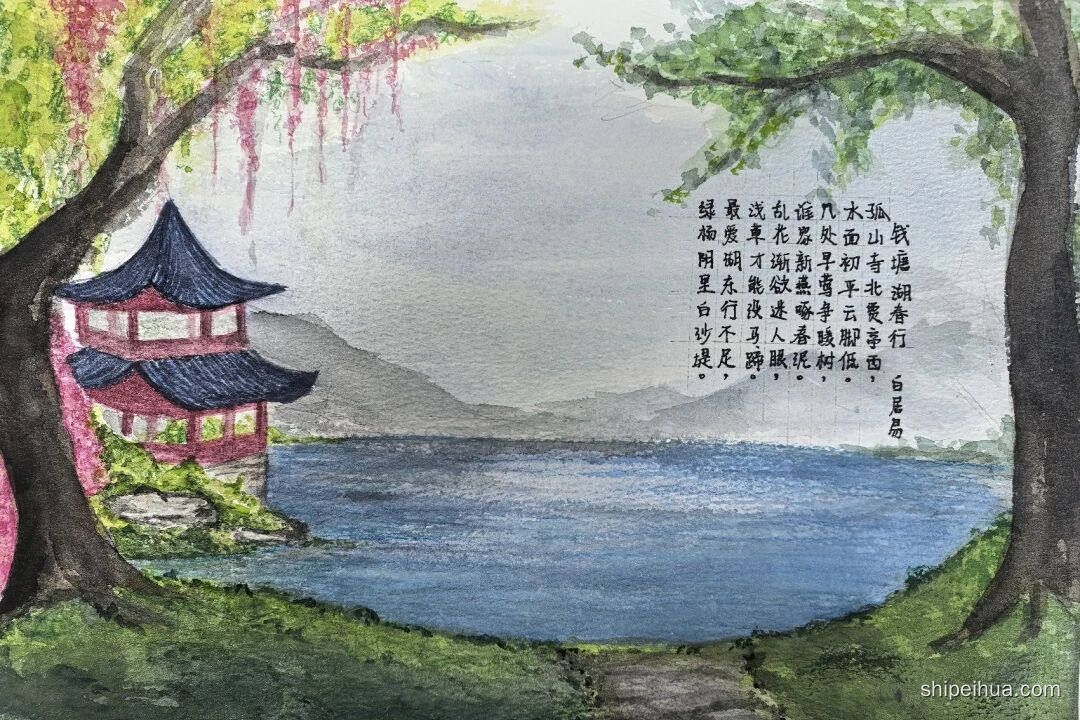 钱塘湖春行 白居易
孤山寺北贾亭西，
水面初平云脚低。
几处早莺争暖树，
谁家新燕啄春泥。
乱花渐欲迷人眼，
浅草才能没马蹄。
最爱湖东行不足，
绿杨阴里白沙堤。
shipeihua.com